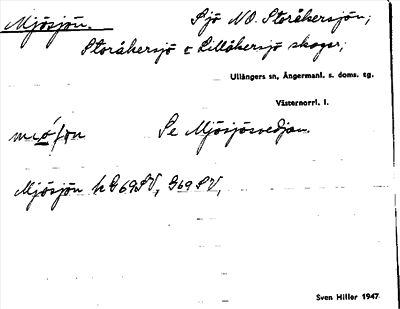 Mjösjön. Sjö NO. Storåkersjön,
Storåkersjö o Lillåkersjö skogar,
Ullångers sn, Ångermanl. s. doms. tg.
Västernorrl. l.
Se Mjösjösvedjan.
Mjösjön k G69SV, G69SV,
Sven Hiller 1947